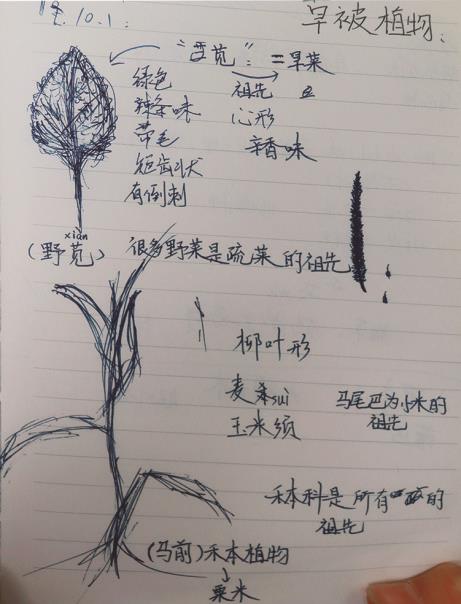 10.1:
早被植物.
"苋": = 旱菜
绿色
味
带毛
短齿状
有倒刺
祖先
心形
辛香味
xiàn
(野苋)
很多野菜是疏菜的祖先
柳叶形
麦 sui
玉米须
马尾巴为小米的
祖先
禾本科是所有 的
祖先
(马前)禾本植物
↓
粟米